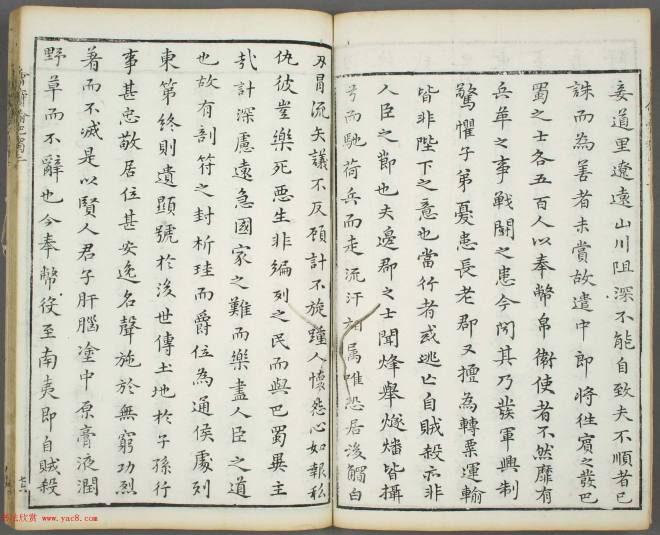 妾道里遼遠山川阻深不能自致夫不順者已
誅而為善者未賞故遣中郎將往賓之發巴
蜀之士各五百人以奉幣帛衛使者不然靡有
兵革之事戰鬪之患今聞其乃發軍興制
驚懼子弟憂患長老郡又擅為轉粟運輸
皆非陛下之意也當行者或逃亡自賊殺亦非
人臣之節也夫邊郡之士聞烽舉燧燔皆攝
弓而馳荷兵而走流汗相屬唯恐居後觸白
刃冒流矢議不反顧計不旋踵人懷怒心如報私
仇彼豈樂死惡生非編列之民而與巴蜀異主
哉計深慮遠急國家之難而樂盡人臣之道
也故有剖符之封析珪而爵位為通侯處列
東第終則遺顯號於後世傳土地於子孫行
事甚忠敬居位甚安逸名聲施於無窮功烈
著而不滅是以賢人君子肝腦塗中原膏液潤
野草而不辭也今奉幣役至南夷即自賊殺
書法欣赏 www.yac8.com